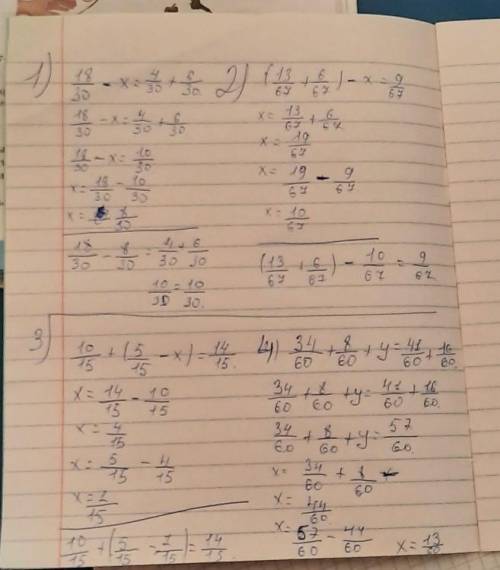 1) 18/30 - x = 4/30 + 6/30
18/30 - x = 4/30 + 6/30
18/30 - x = 10/30
x = 18/30 - 10/30
x = 8/30
18/30 - 8/30 = 4/30 + 6/30
10/30 = 10/30.
2) (13/67 + 6/67) - x = 9/67
x = 13/67 + 6/67
x = 19/67
x = 19/67 - 9/67
x = 10/67
(13/67 + 6/67) - 10/67 = 9/67.
3) 10/15 + (5/15 - x) = 14/15.
x = 14/15 - 10/15
x = 4/15
x = 5/15 - 4/15
x = 1/15
10/15 + (5/15 - 1/15) = 14/15.
4) 34/60 + 8/60 + y = 41/60 + 16/60.
34/60 + 8/60 + y = 41/60 + 16/60.
34/60 + 8/60 + y = 57/60.
x = 34/60 + 8/60
x = 44/60
x = 57/60 - 44/60
x = 13/